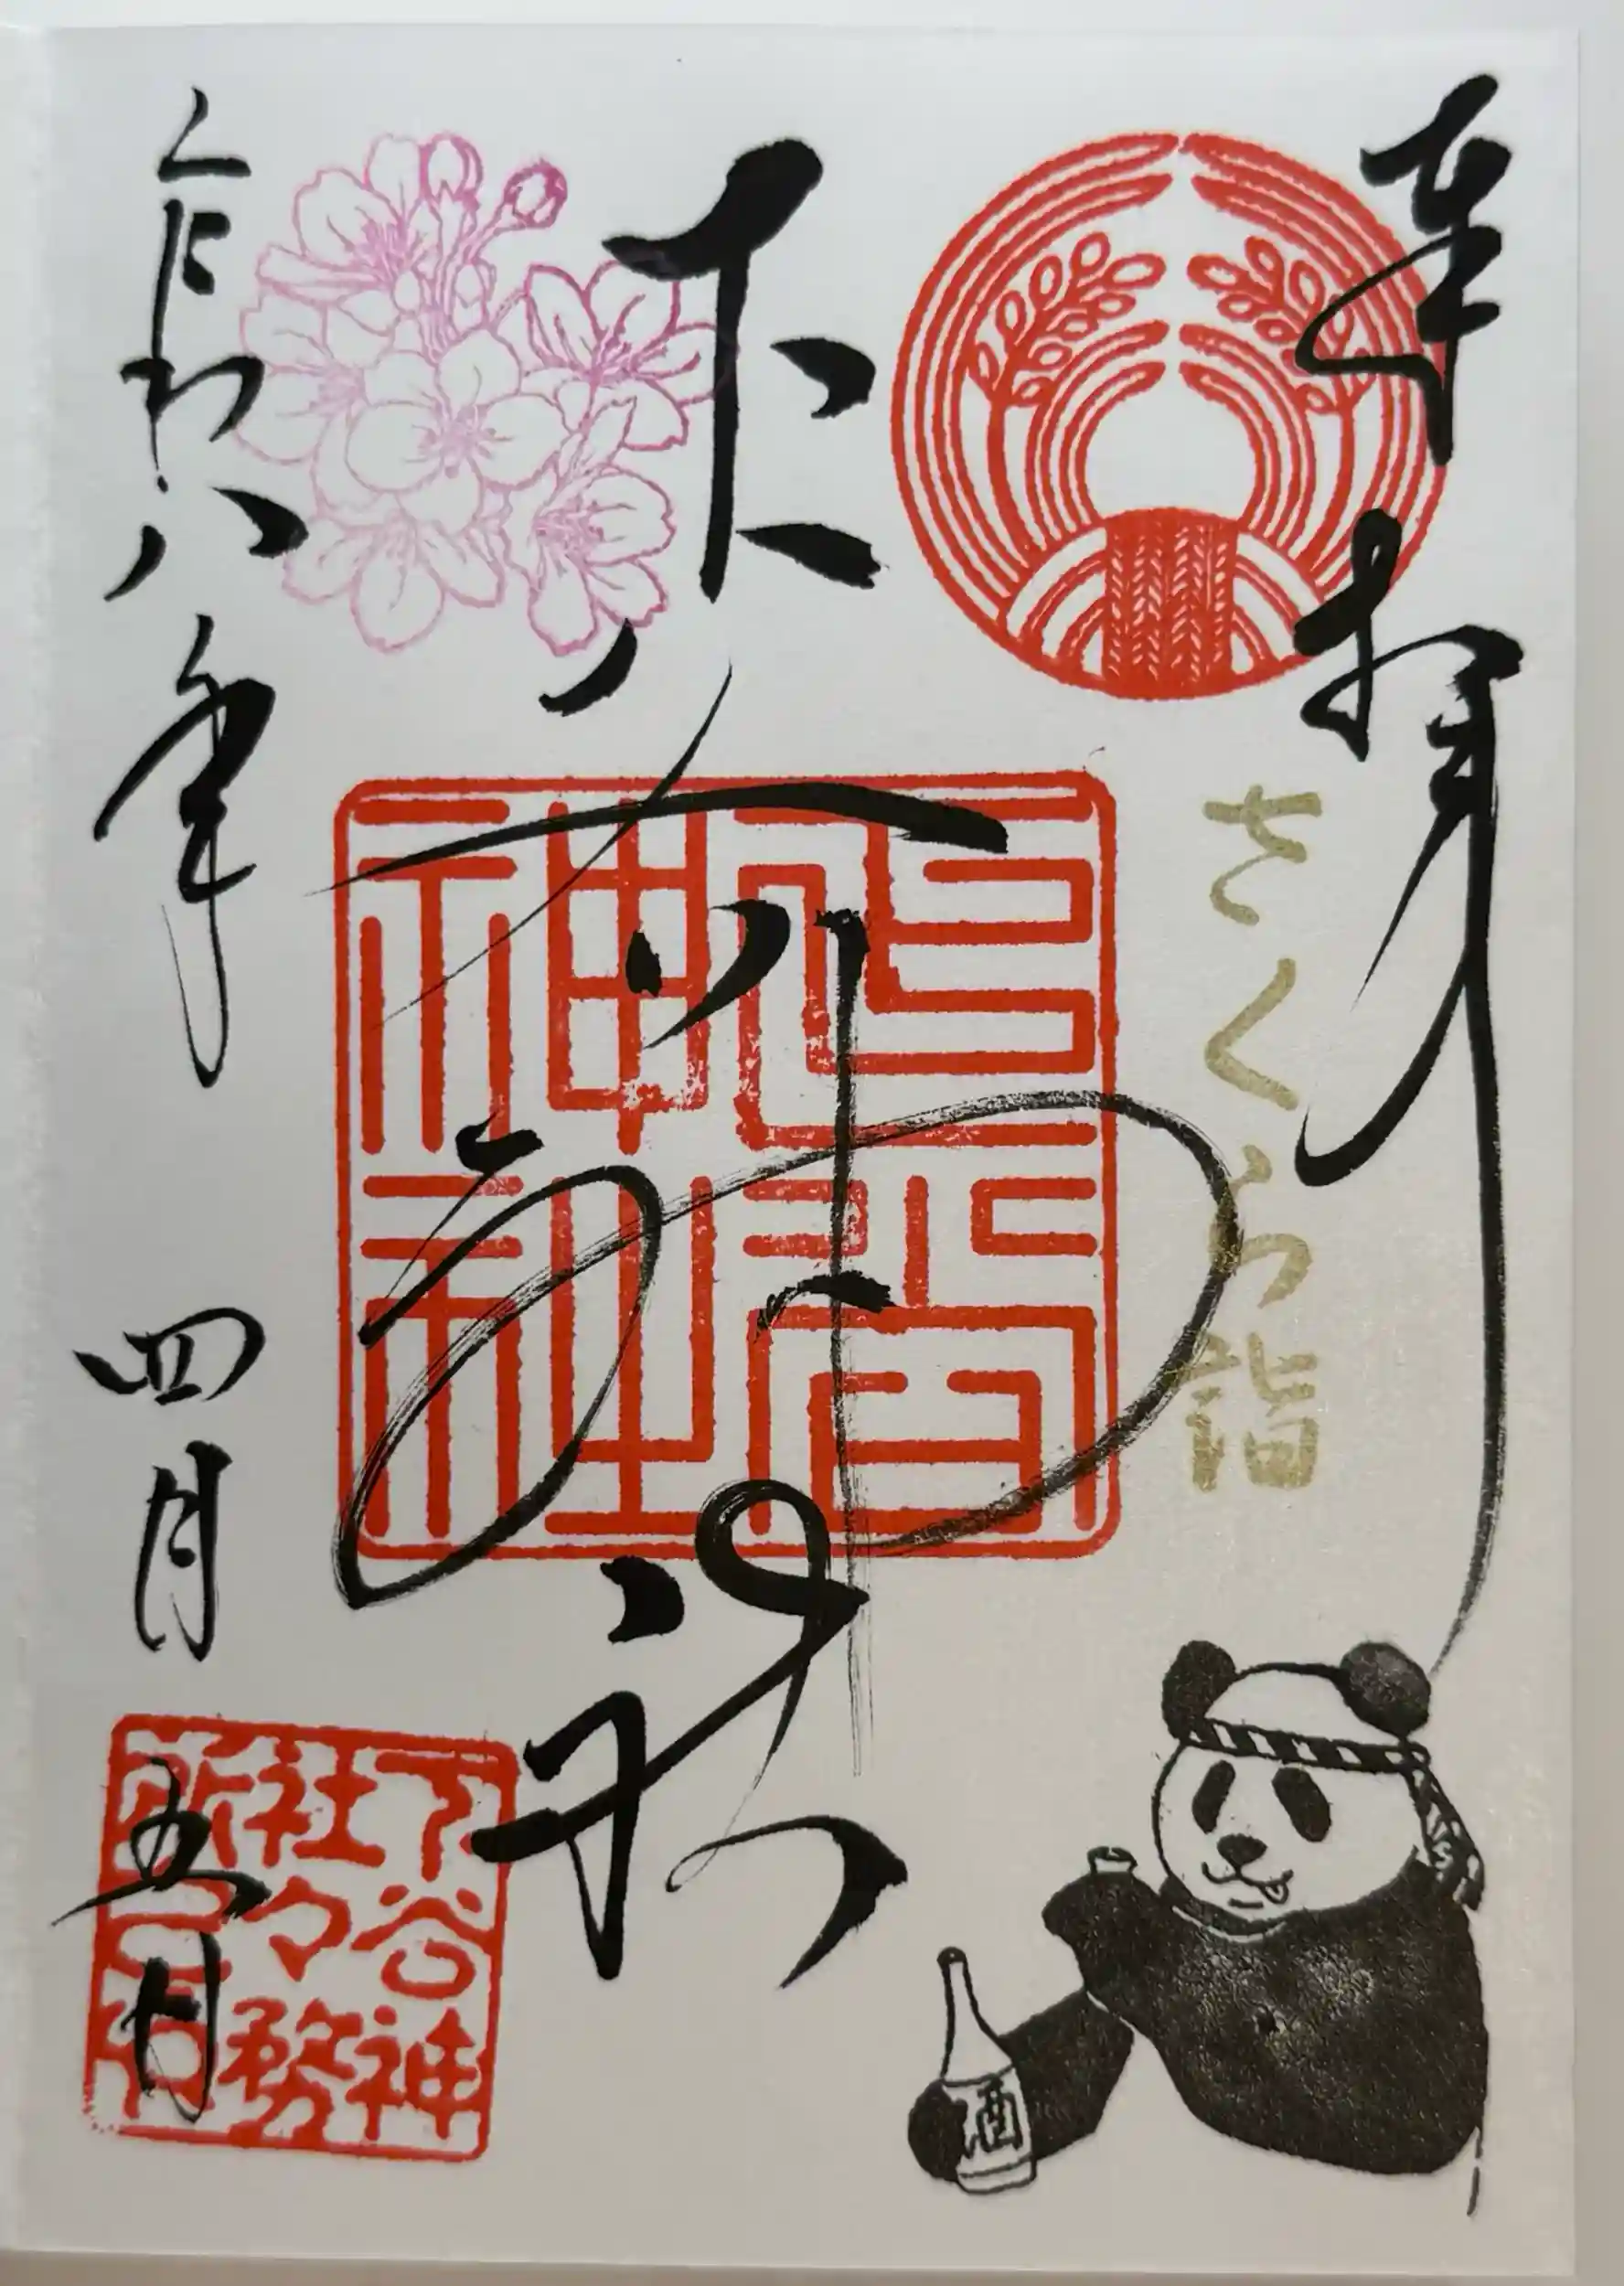 奉拝
さくら詣
下谷神社
下谷
神社
令和八年四月五日
下谷神
社々務
所之印
酒